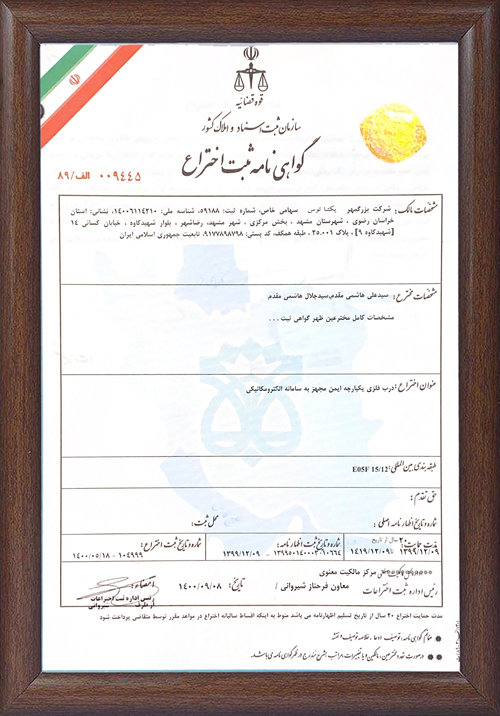 قوه قضائیه
سازمان ثبت اسناد و املاک کشور
گواهی نامه ثبت اختراع
۰۰۹۴۴۵ الف/۸۹
مشخصات مالک: شرکت بزرگمهر یکتا توس سهامی خاص، شماره ثبت: ۵۹۱۸۸، شناسه ملی: ۱۴۰۰۶۱۱۴۲۱۰، نشانی: استان
خراسان رضوی ، شهرستان مشهد ، بخش مرکزی ، شهر مشهد، رضاشهر ، بلوار شهیدکاوه ، خیابان کسائی ۱۴
[شهیدکاوه ۹] ، پلاک ۲۵.۰۰۱ ، طبقه همکف، کد پستی: ۹۱۷۷۸۹۸۷۹۸، تابعیت جمهوری اسلامی ایران
مشخصات مخترع: سیدعلی هاشمی مقدم،سیدجلال هاشمی مقدم
مشخصات کامل مخترعین ظهر گواهی ثبت ...
عنوان اختراع: درب فلزی یکپارچه ایمن مجهز به سامانه الکترومکانیکی
طبقه بندی بین المللی: E05F 15/12
حق تقدم:
شماره و تاریخ اظهارنامه اصلی: محل ثبت:
مدت حمایت ۲۰ سال از تاریخ ۱۳۹۹/۱۲/۰۹ تا ۱۴۱۹/۱۲/۰۹
شماره و تاریخ ثبت اظهارنامه: ۱۳۹۹/۱۲/۰۹ - ۱۳۹۹۵۰۱۴۰۰۰۳۰۱۰۶۶۴
شماره و تاریخ ثبت اختراع: ۱۴۰۰/۰۵/۱۸ - ۱۰۴۹۹۹
مرکز مالکیت معنوی
رئیس اداره ثبت اختراعات معاون فرحناز شیروانی / تاریخ: ۱۴۰۰/۰۹/۰۸ امضاء
رئیس اداره ثبت اختراعات
از طرف شیروانی
مدت حمایت اختراع ۲۰ سال از تاریخ تسلیم اظهارنامه می باشد منوط به اینکه اقساط سالیانه اختراع در مواعد مقرر توسط متقاضی پرداخت شود
ضمائم گواهی نامه: توصیف، ادعا، خلاصه توصیف و نقشه
در صورت تعدد مخترعین، مالکین و یا تغییرات، مراتب بشرح مندرج در ظهر گواهی نامه می باشد.